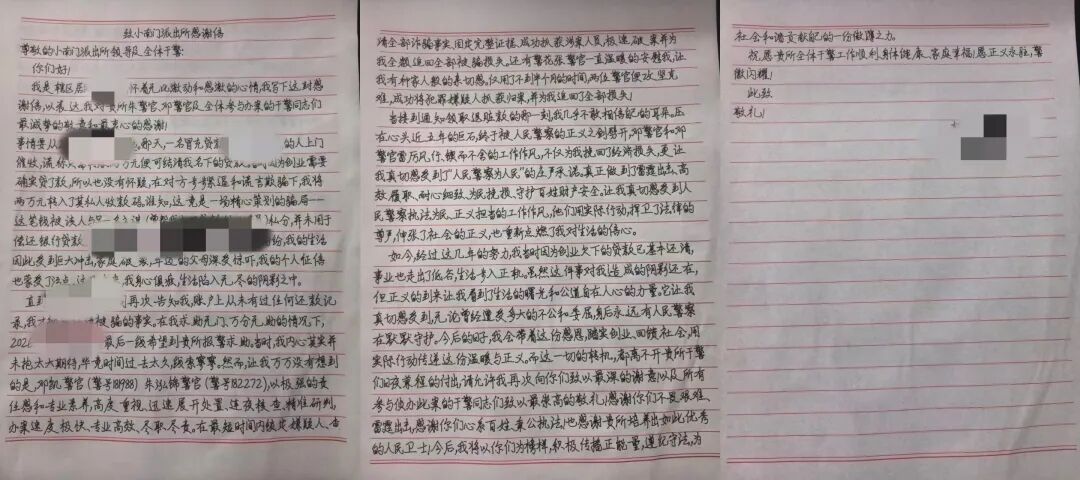 致小南门派出所感谢信
尊敬的小南门派出所领导及全体干警:
你们好!
我是辖区居 怀着无比激动和感激的心情,我写下这封感
谢信,以表达我对贵所朱警官、邓警官及全体参与办案的干警同志们
最诚挚的敬意和最衷心的感谢!
事情要从 那天,一名冒充贷款 的人上门
催收,谎称 万元便可结清我名下的贷款, 因为创业需要
确实贷了款,所以也没有怀疑,在对方号 和谎言欺骗下,我将
两万元转入了其私人收款码。谁知,这竟是一场精心策划的骗局——
这笔钱被该人与另一名 私分,并未用于
偿还银行贷款 纷,我的生活
因此受到巨大冲击,家庭破裂,年迈的父母深受惊吓,我的个人征信
也蒙受了污点, 我身心俱疲,生活陷入无尽的阴影之中。
直到 再次告知我,账户上从未有过任何还款记
录,我才 被骗的事实。在我求助无门、万分无助的情况下,
202 最后一线希望到贵所报警求助。当时,我内心其实并
未抱太大期待,毕竟时间过去太久,线索寥寥。然而,让我万万没有想到
的是,邓凯警官(警号18988)朱泓锦警官(警号82272),以极强的责
任感和专业素养,高度重视、迅速展开处置、连夜核查、精准研判,
办案速度极快、专业高效、尽职尽责。在最短时间内锁定嫌疑人、查
清全部诈骗事实,固定完整证据,成功抓获涉案人员,极速破案并为
我全额追回全部被骗损失。还有警花张警官一直温暖的安慰我,让
我有种家人般的亲切感。仅用了不到半个月的时间,两位警官便攻坚克
难,成功将犯罪嫌疑人抓获归案,并为我追回了全部损失!
当接到通知领取退赃款的那一刻,我几乎不敢相信自己的耳朵。压
在心头近五年的巨石,终于被人民警察的正义之剑劈开,邓警官和邓
警官雷厉风行、锲而不舍的工作作风,不仅为我挽回了经济损失,更让
我真切感受到了“人民警察为人民”的庄严承诺。真正做到了雷霆出击、高
效履职、耐心细致、为民挽损、守护百姓财产安全。让我真切感受到人
民警察执法为民、正义担当的工作作风,他们用实际行动,捍卫了法律的
尊严,伸张了社会的正义,也重新点燃了我对生活的信心。
如今,经过这几年的努力,我当时因为创业欠下的贷款已基本还清,
事业也走出了低谷,生活步入正轨。虽然这件事对我造成的阴影还在,
但正义的到来让我看到了生活的曙光和公道自在人心的力量。它让我
真切感受到,无论曾经遭受多大的不公和委屈,身后永远有人民警察
在默默守护。今后的日子,我会带着这份感恩,踏实创业,回馈社会,用
实际行动传递这份温暖与正义。而这一切的转机,都离不开贵所干警
们日夜兼程的付出,请允许我再次向你们致以最深的谢意以及所有
参与侦办此案的干警同志们致以最崇高的敬礼!感谢你们不畏艰难、
雷霆出击,感谢你们心系百姓、秉公执法!也感谢贵所培养出如此优秀
的人民卫士!今后,我将以你们为榜样,积极传播正能量,遵纪守法,为
社会和谐贡献自己的一份微薄之力。
祝愿贵所全体干警工作顺利,身体健康、家庭幸福!愿正义永驻,警
徽闪耀!
此致
敬礼!